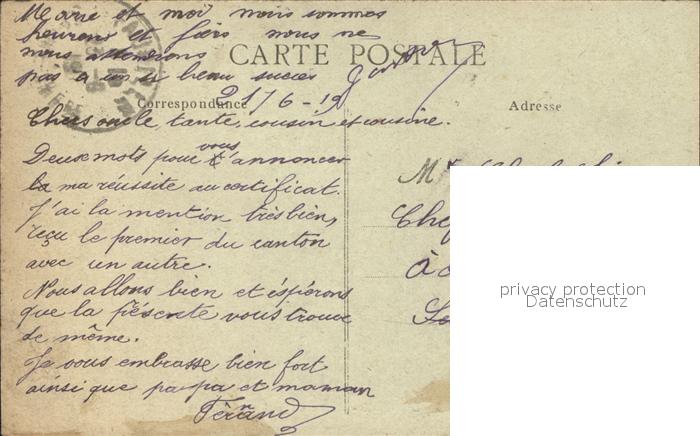 Marie et moi nous sommes
heureux et fiers nous ne
nous attendions
pas à un si beau succès
CARTE POSTALE
Correspondance
Adresse
21/6-19
Chers oncle, tante, cousin et cousine.
Deux mots pour vous annoncer
la ma réussite au certificat.
J'ai la mention très bien,
reçu le premier du canton
avec un autre.
Nous allons bien et éspérons
que la présente vous trouve
de même.
Je vous embrasse bien fort
ainsi que papa et maman
Mr
Che
à
privacy protection
Datenschutz